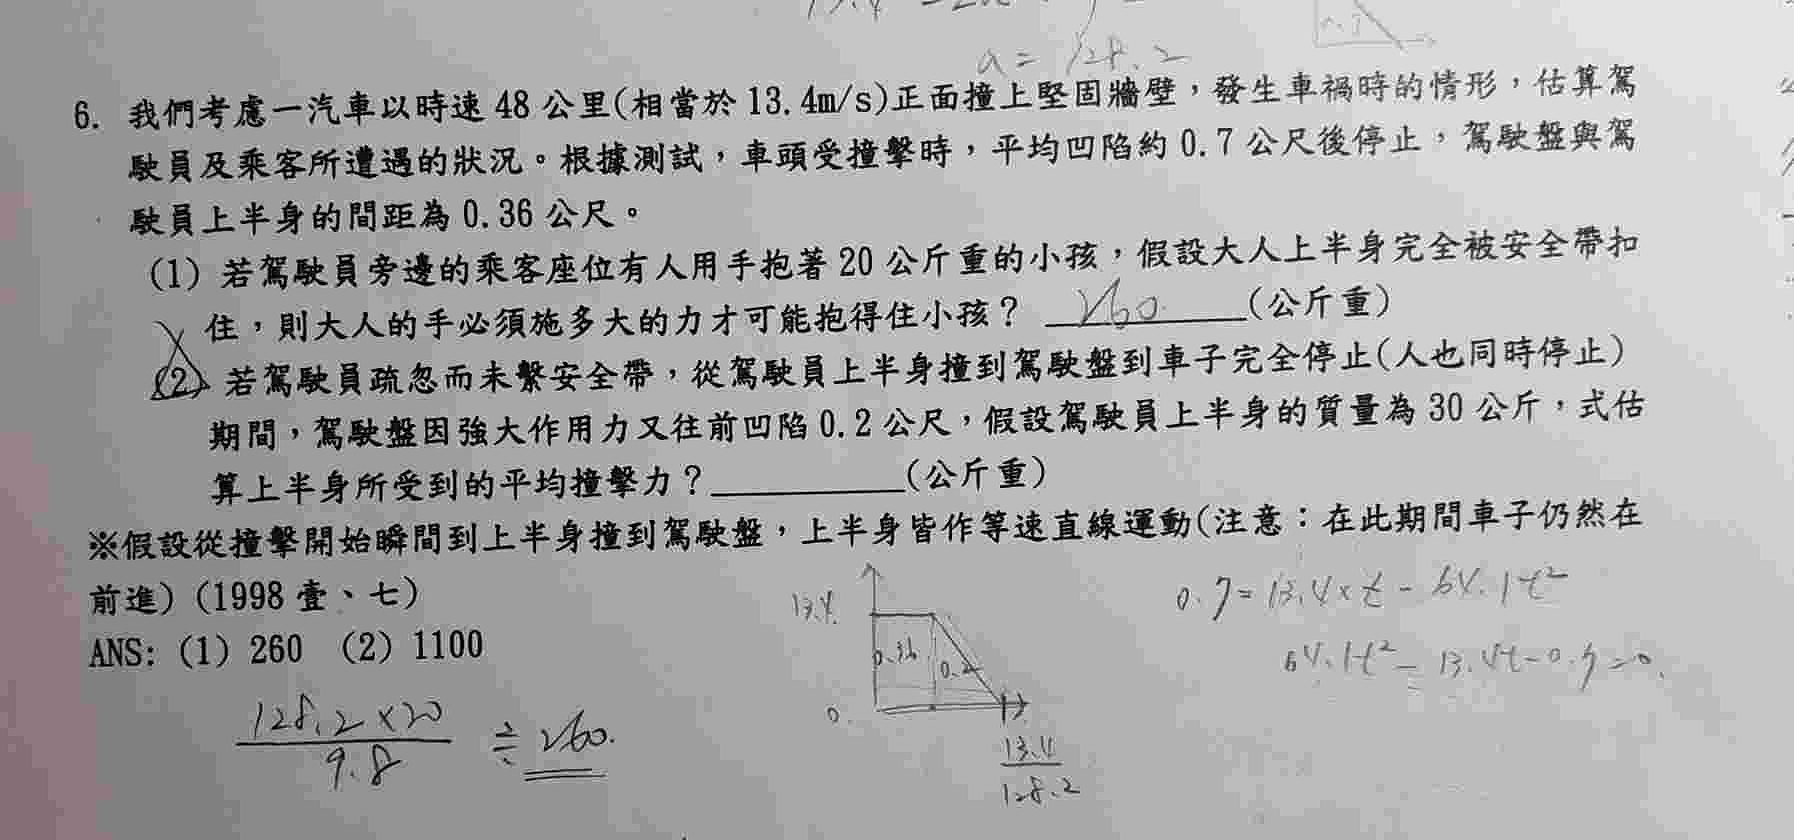 a = 128.2
6. 我們考慮一汽車以時速 48 公里(相當於 13.4m/s)正面撞上堅固牆壁，發生車禍時的情形，估算駕
駛員及乘客所遭遇的狀況。根據測試，車頭受撞擊時，平均凹陷約 0.7 公尺後停止，駕駛盤與駕
駛員上半身的間距為 0.36 公尺。
(1) 若駕駛員旁邊的乘客座位有人用手抱著 20 公斤重的小孩，假設大人上半身完全被安全帶扣
住，則大人的手必須施多大的力才可能抱得住小孩？ 260 (公斤重)
(2) 若駕駛員疏忽而未繫安全帶，從駕駛員上半身撞到駕駛盤到車子完全停止(人也同時停止)
期間，駕駛盤因強大作用力又往前凹陷 0.2 公尺，假設駕駛員上半身的質量為 30 公斤，式估
算上半身所受到的平均撞擊力？__________(公斤重)
※假設從撞擊開始瞬間到上半身撞到駕駛盤，上半身皆作等速直線運動(注意：在此期間車子仍然在
前進) (1998 壹、七)
ANS: (1) 260 (2) 1100
13.4
0.36
0.2
0
13.4
128.2
0.7 = 13.4 × t - 64.1t²
64.1t² - 13.4t - 0.7 = 0
128.2 × 20
9.8
≒ 260.